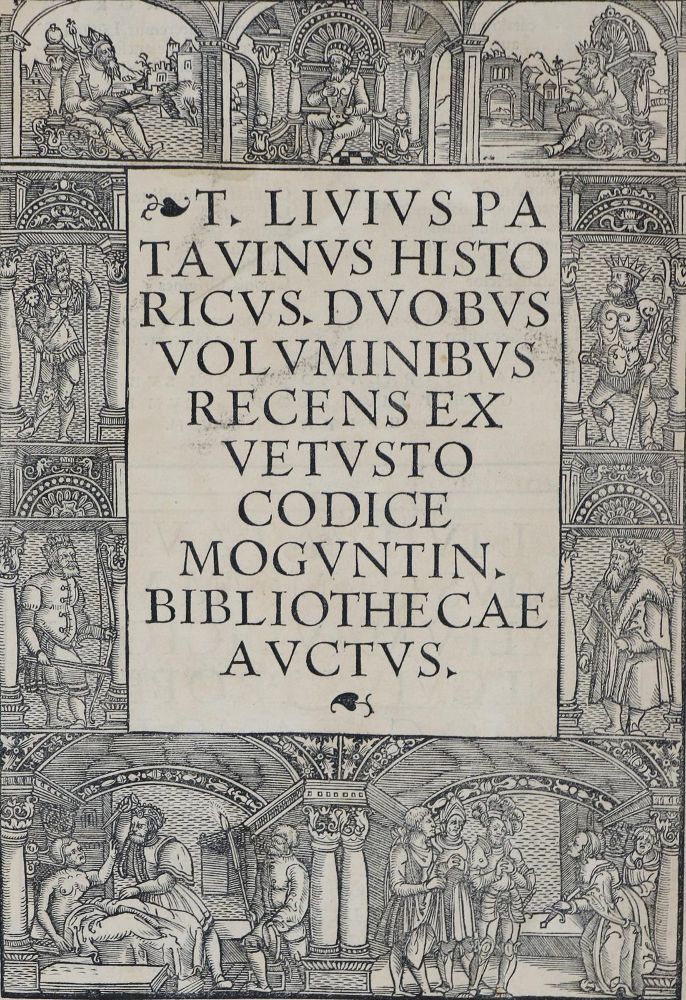 T. LIVIVS PA
TAVINVS HISTO
RICVS. DVOBVS
VOLVMINIBVS
RECENS EX
VETVSTO
CODICE
MOGVNTIN.
BIBLIOTHECAE
AVCTVS.